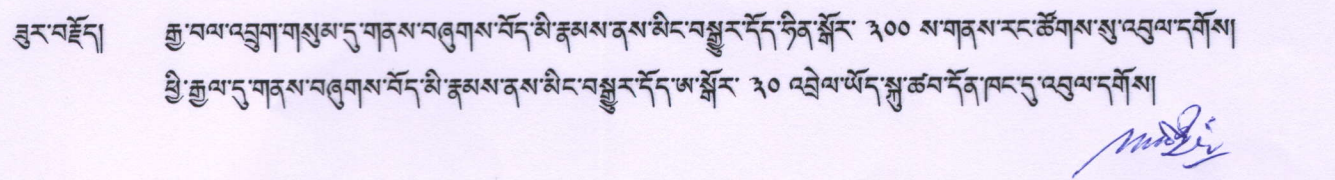 ཟུར་བརྗོད། རྒྱ་བལ་འབྲུག་གསུམ་དུ་གནས་བཞུགས་བོད་མི་རྣམས་ནས་མིང་བསྒྱུར་དོད་ཧིན་སྒོར་ ༣༠༠ ས་གནས་རང་ཚོགས་སུ་འབུལ་དགོས།
ཕྱི་རྒྱལ་དུ་གནས་བཞུགས་བོད་མི་རྣམས་ནས་མིང་བསྒྱུར་དོད་ཨ་སྒོར་ ༣༠ འབྲེལ་ཡོད་སྐུ་ཚབ་དོན་ཁང་དུ་འབུལ་དགོས།